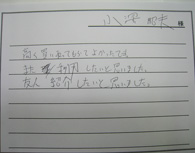 小澤 昭夫 様
高く買い取ってもらってよかったです。
また 利用 したいと思いました。
友人 紹介 したいと、思いました。